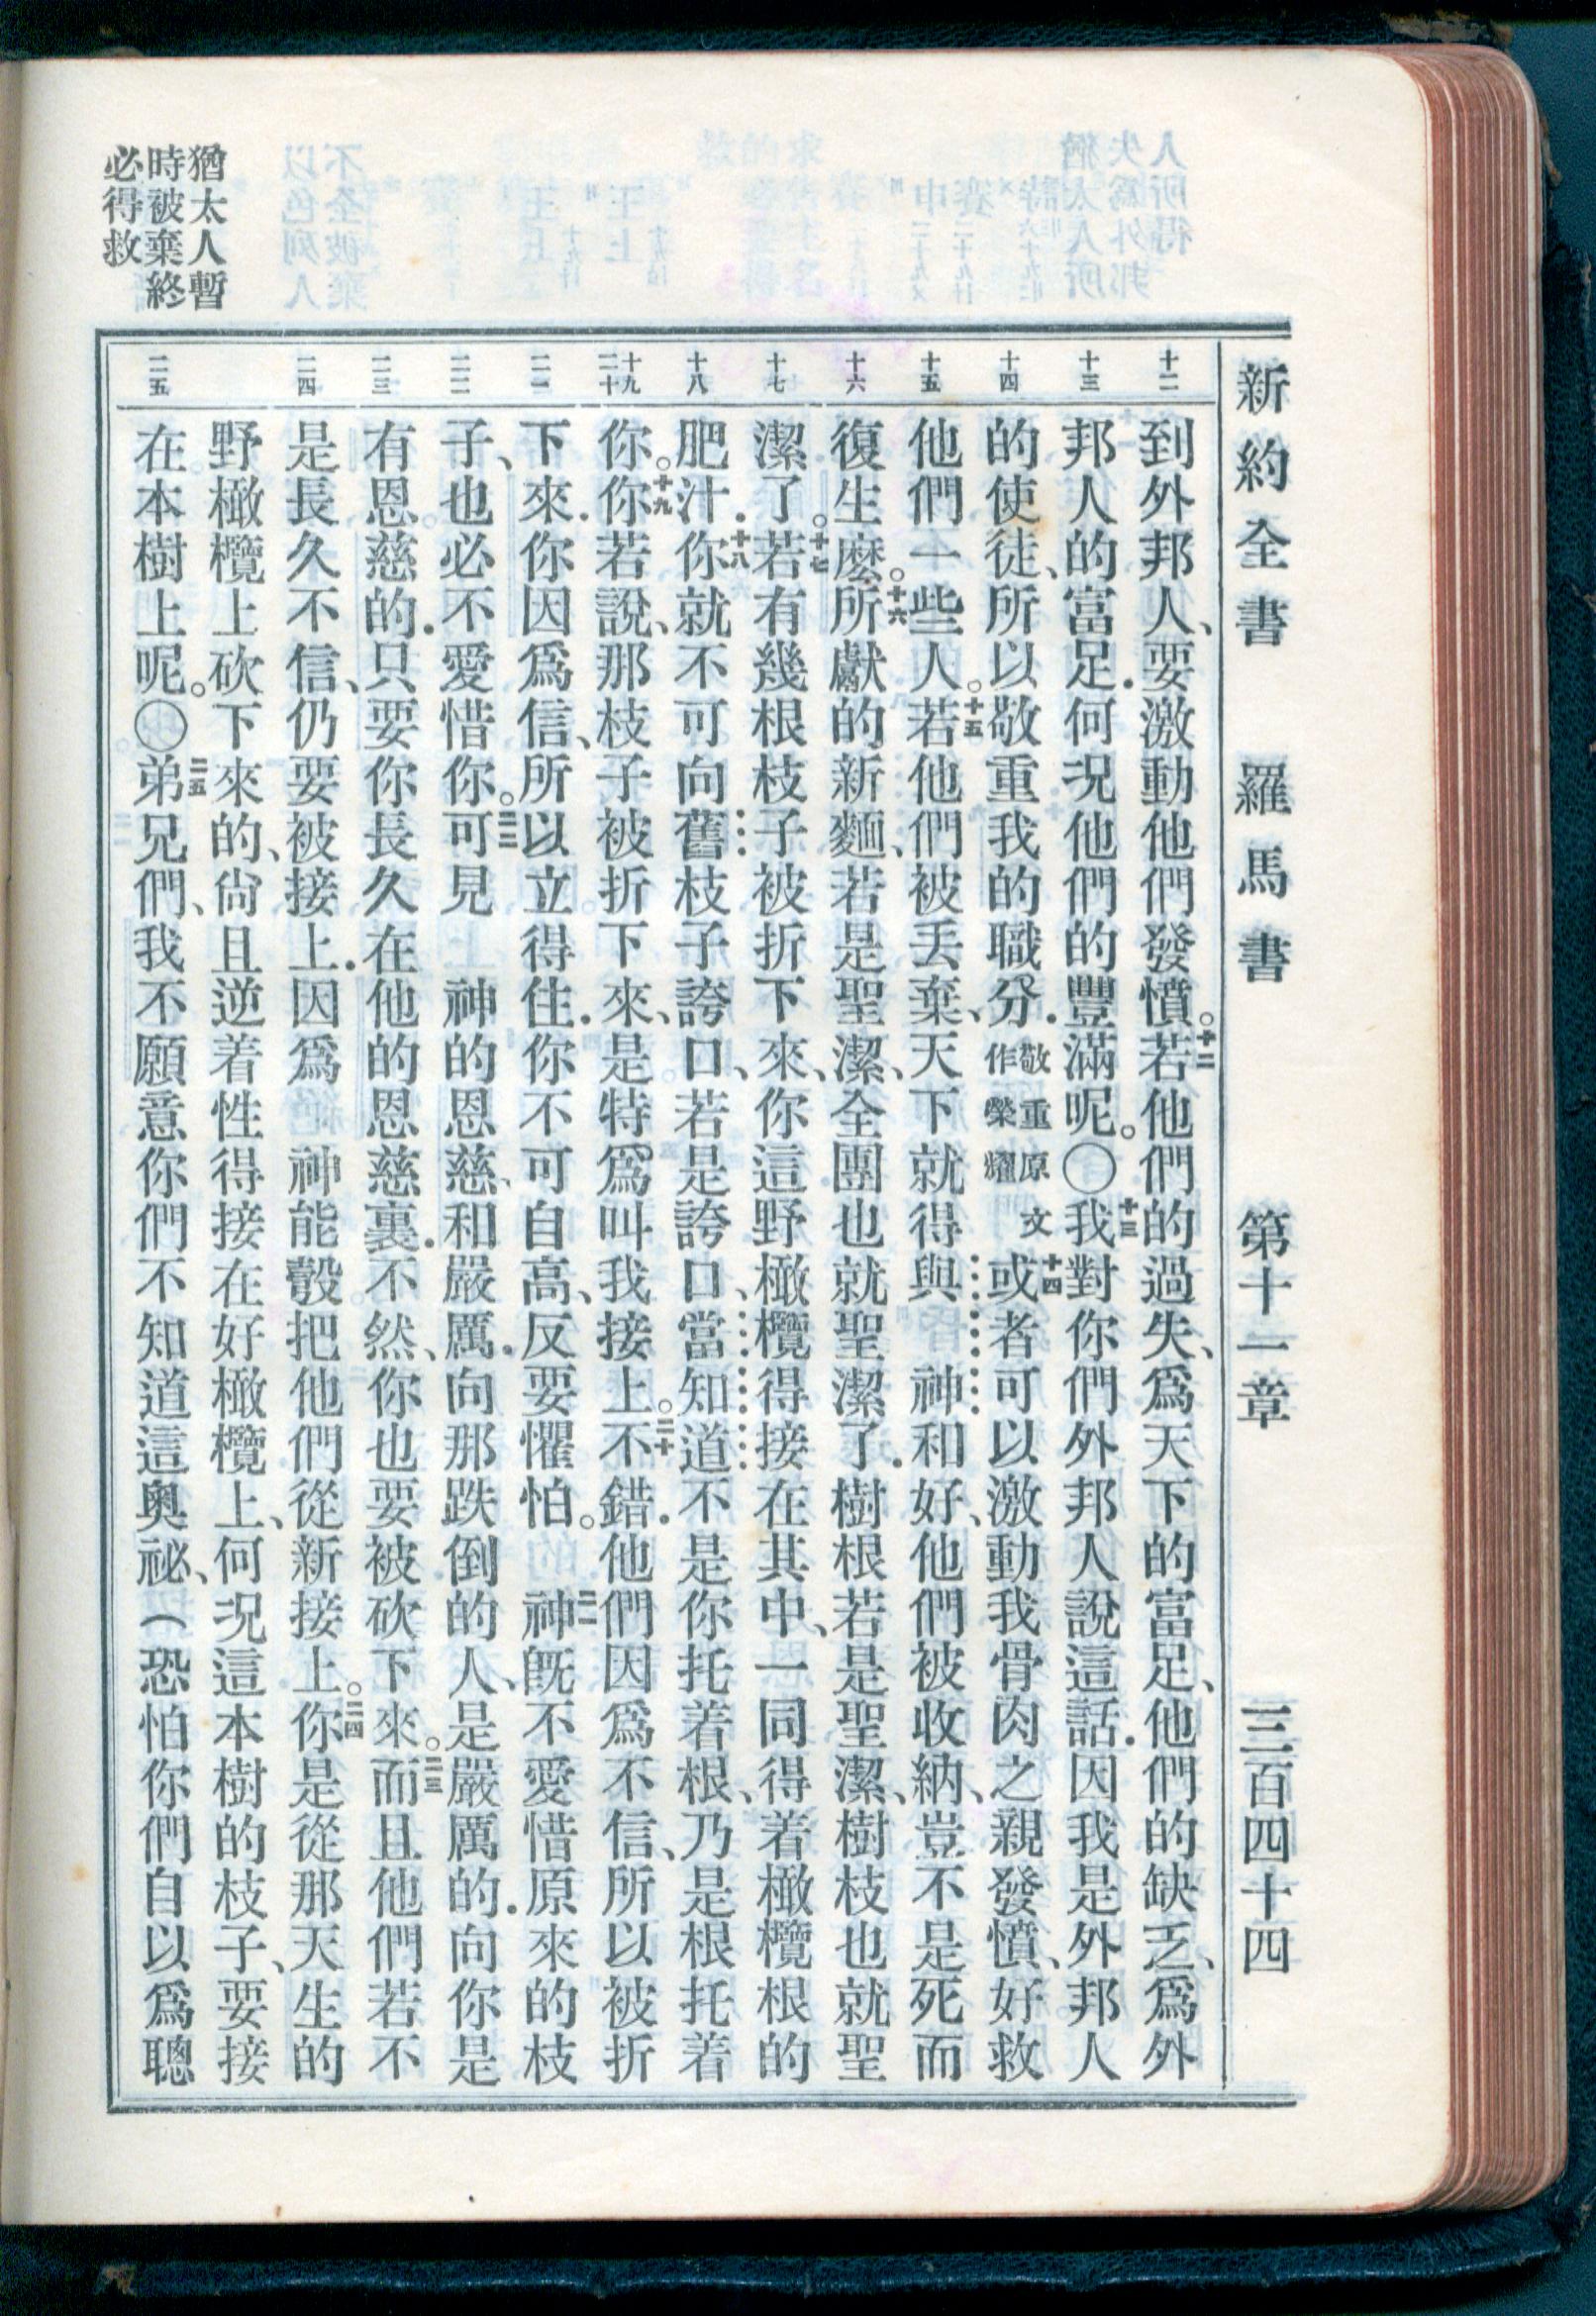 新約全書 羅馬書 第十一章 三百四十四
十二
到外邦人、要激動他們發憤。十二若他們的過失、爲天下的富足、他們的缺乏、爲外
十三
邦人的富足．何況他們的豐滿呢。〇十三我對你們外邦人說這話．因我是外邦人
十四
的使徒、所以敬重我的職分．敬重原文作榮耀十四或者可以激動我骨肉之親發憤、好救
十五
他們一些人。十五若他們被丟棄、天下就得與 神和好、他們被收納、豈不是死而
十六
復生麼。十六所獻的新麵、若是聖潔、全團也就聖潔了．樹根若是聖潔、樹枝也就聖
十七
潔了。十七若有幾根枝子被折下來、你這野橄欖得接在其中、一同得着橄欖根的
十八
肥汁．十八你就不可向舊枝子誇口、若是誇口、當知道不是你托着根、乃是根托着
十九 二十
你。十九你若說、那枝子被折下來、是特爲叫我接上。二十不錯．他們因爲不信、所以被折
二一
下來．你因爲信、所以立得住．你不可自高、反要懼怕。二一 神既不愛惜原來的枝
二二
子、也必不愛惜你。二二可見 神的恩慈、和嚴厲．向那跌倒的人、是嚴厲的．向你是
二三
有恩慈的．只要你長久在他的恩慈裏．不然、你也要被砍下來。二三而且他們若不
二四
是長久不信、仍要被接上．因爲 神能彀把他們從新接上。二四你是從那天生的
野橄欖上砍下來的、尙且逆着性得接在好橄欖上、何況這本樹的枝子、要接
二五
在本樹上呢。〇二五弟兄們、我不願意你們不知道這奧祕、（恐怕你們自以爲聰
猶太人暫
時被棄終
必得救